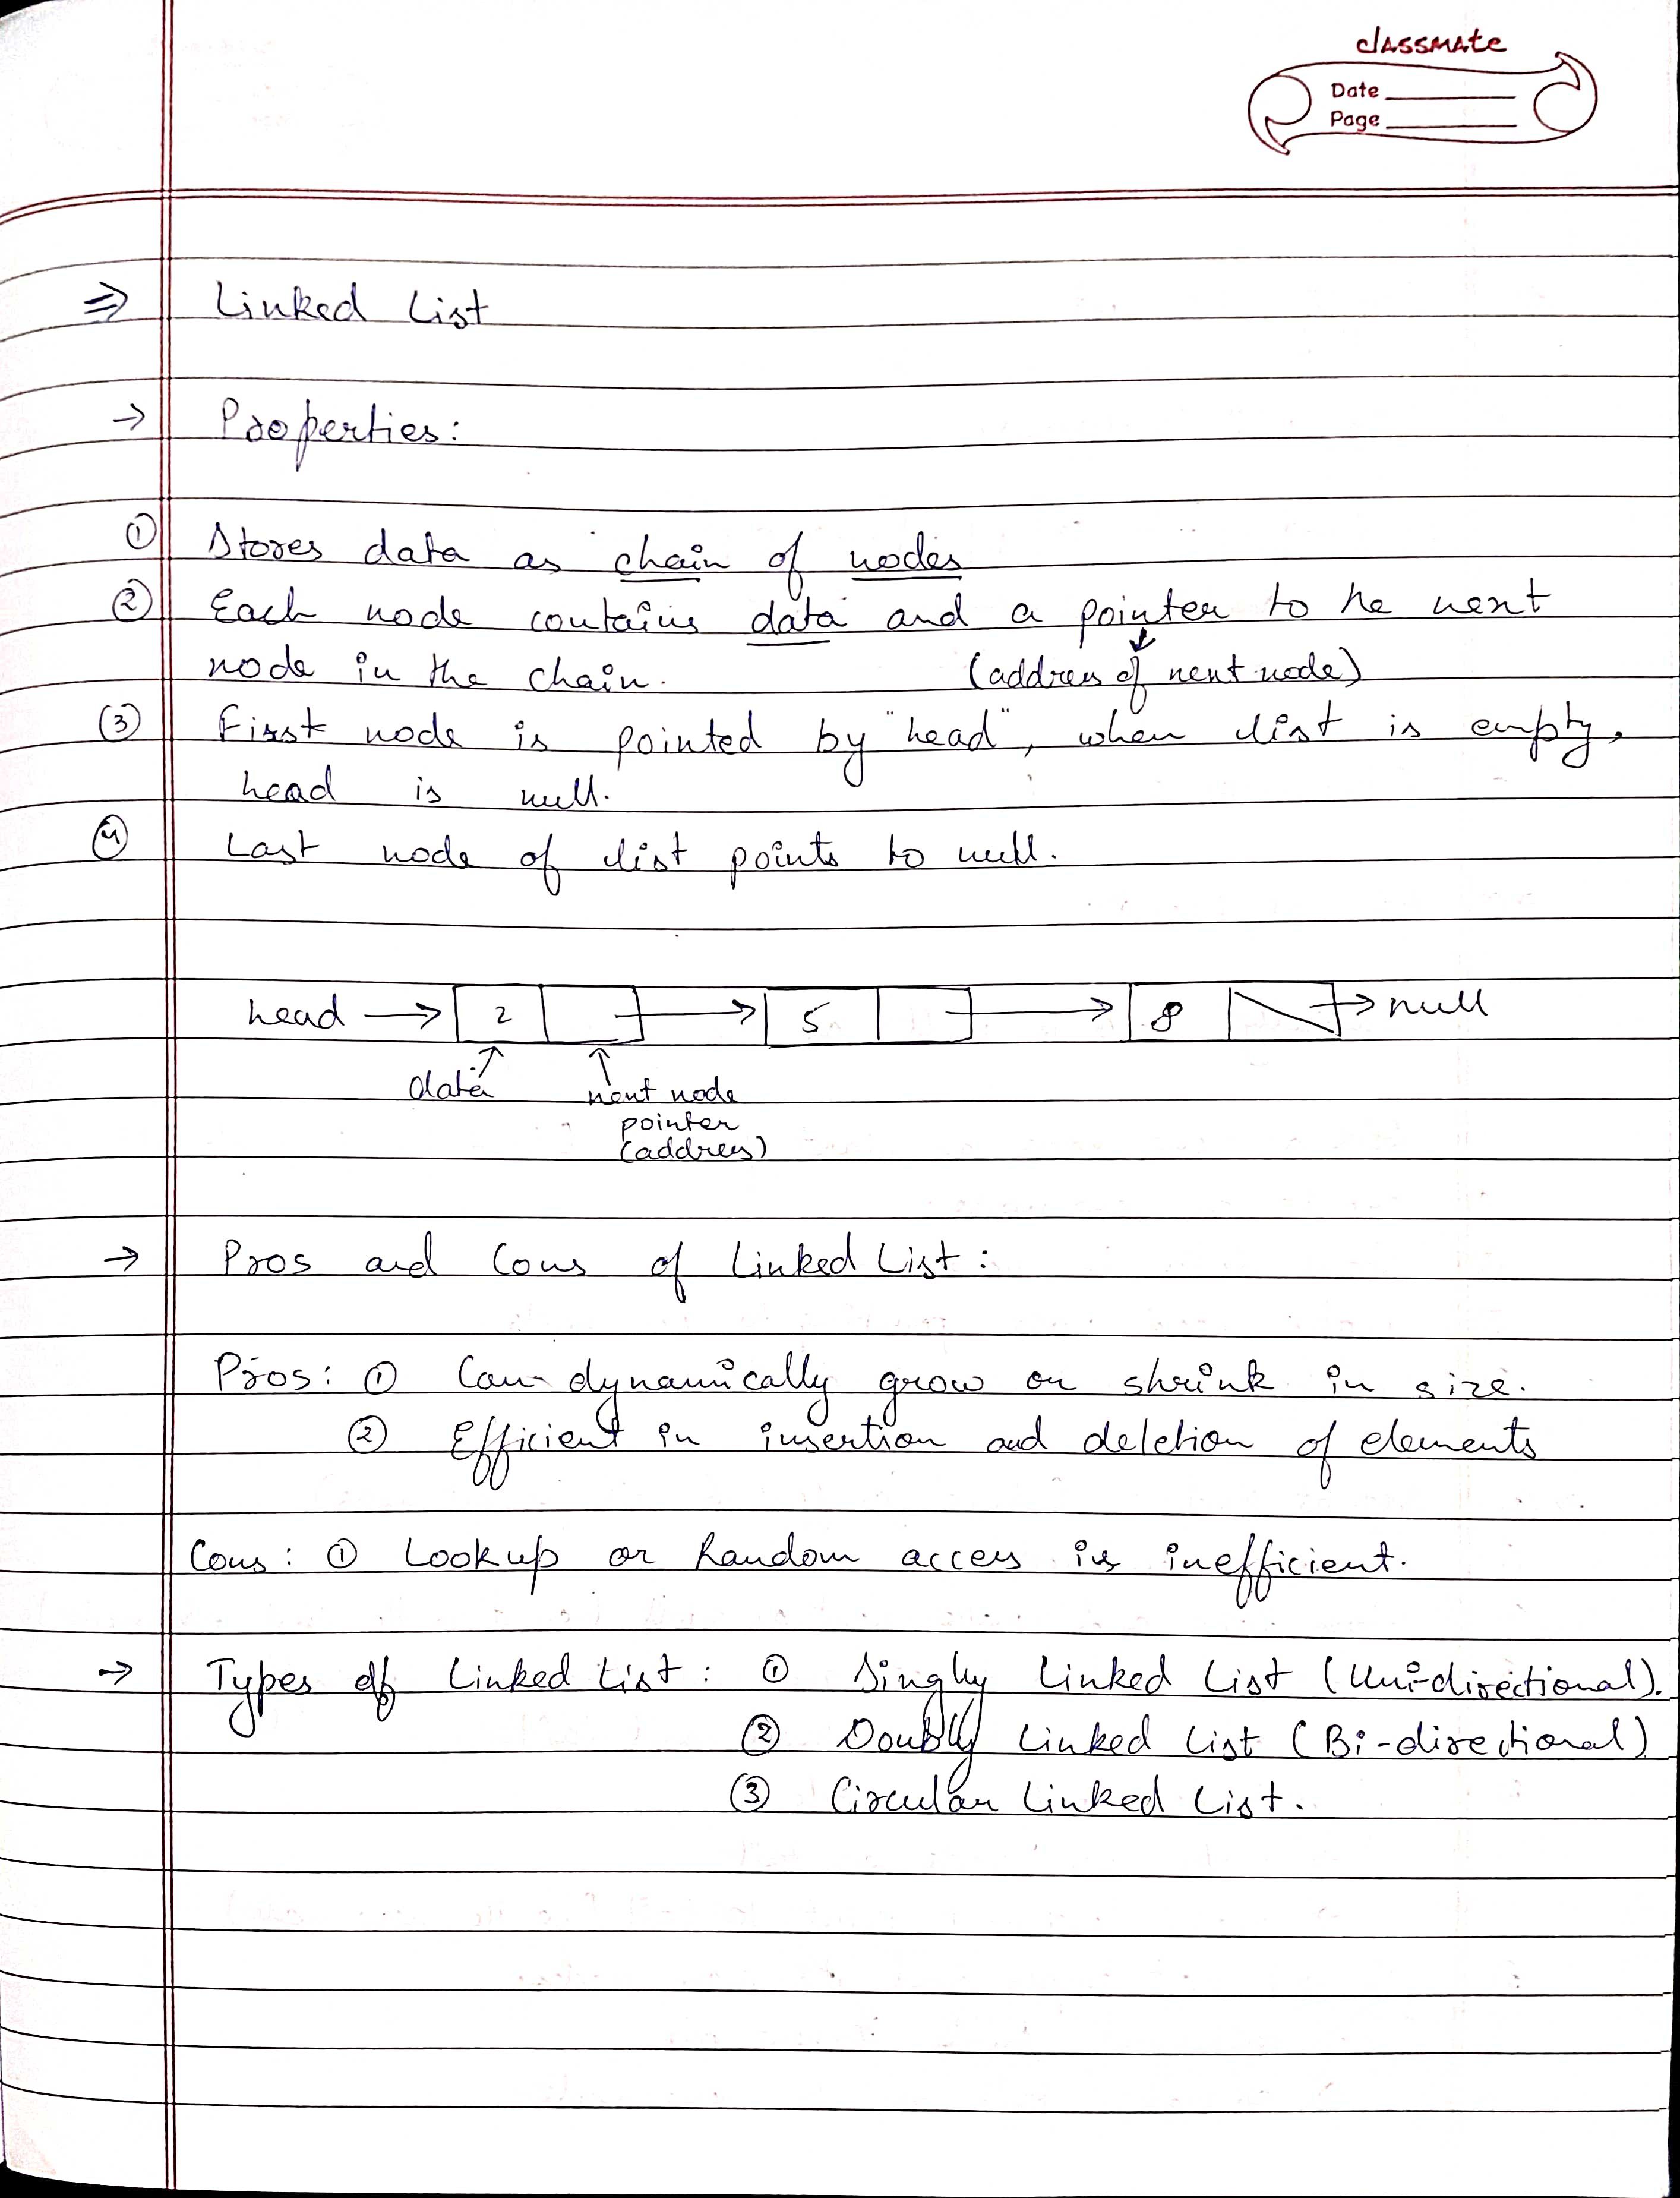 classmate
Date
Page
⇒ Linked List
→ Properties:
① Stores data as chain of nodes
② Each node contains data and a pointer to he next
node in the chain. (address of next node)
③ First node is pointed by "head", when list is empty,
head is null.
④ Last node of list points to null.
head → 2 → 5 → 8 → null
data
next node
pointer
(address)
→ Pros and Cons of Linked List:
Pros: ① Can dynamically grow or shrink in size.
② Efficient in insertion and deletion of elements
Cons: ① Lookup or Random access is inefficient.
→ Types of Linked List: ① Singly Linked List (Uni-directional).
② Doubly Linked List (Bi-directional)
③ Circular Linked List.